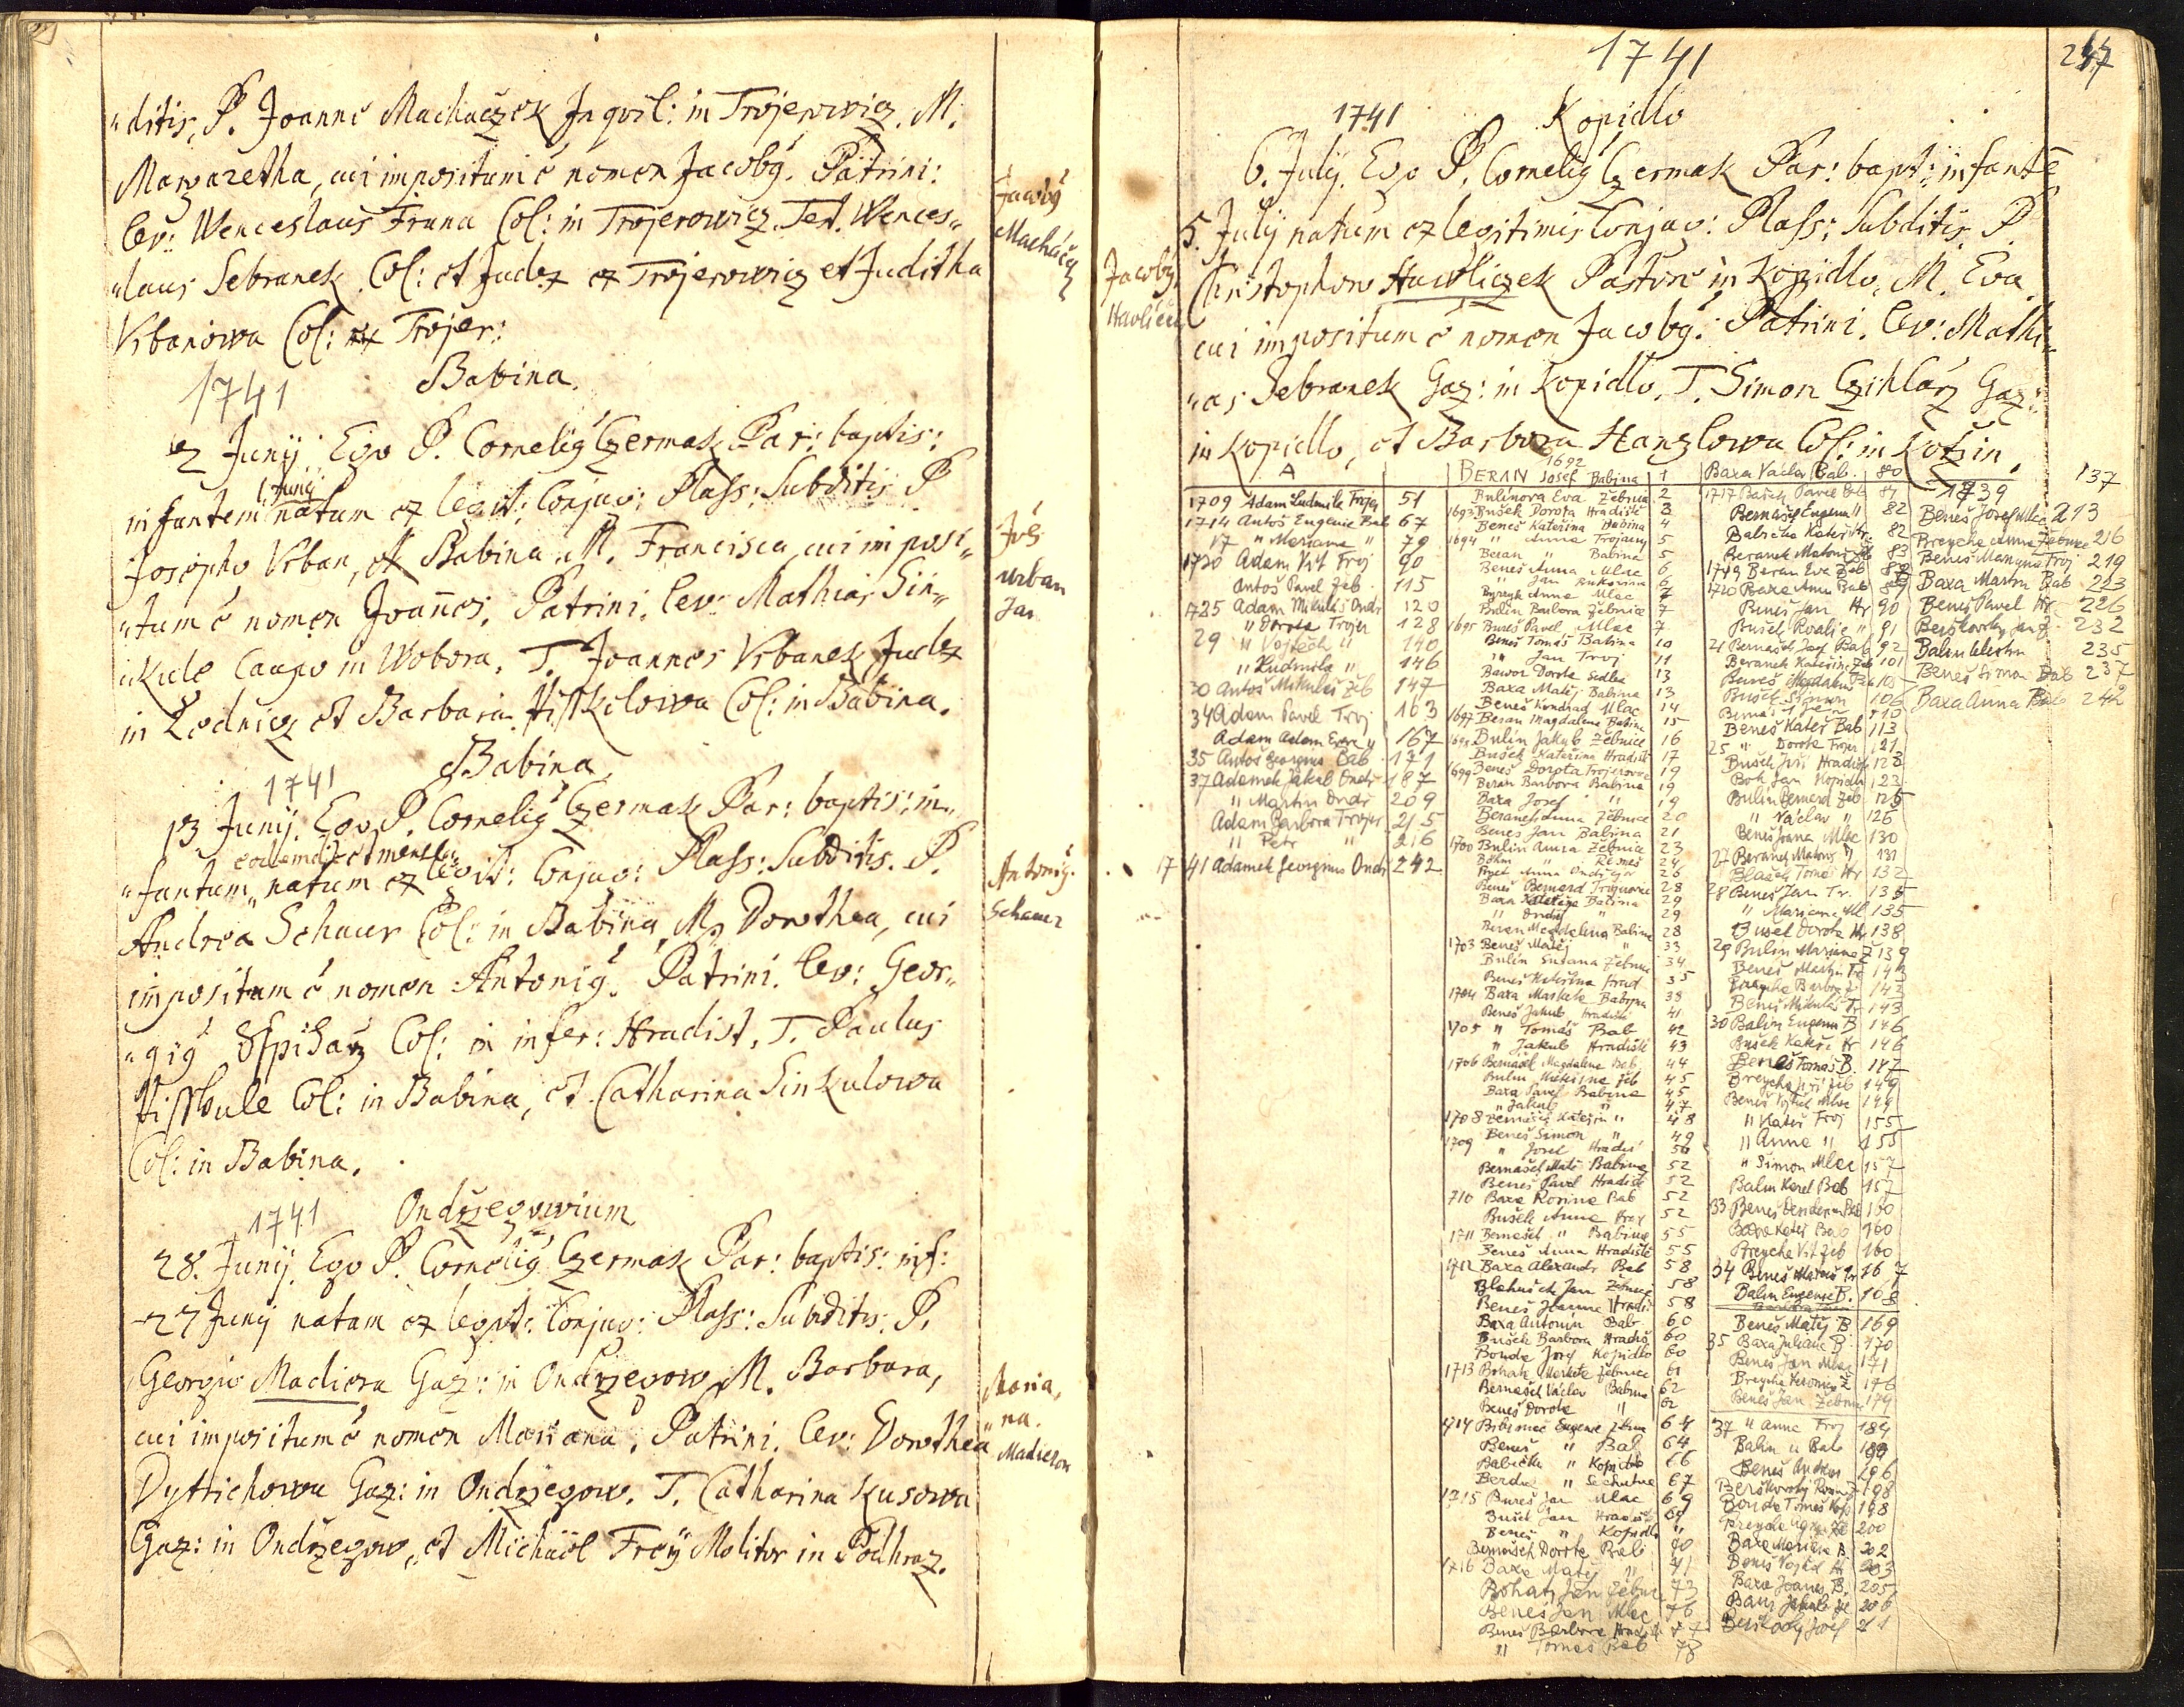 "ditis, P. Joanne Machaczek Inqvil: in Trojerowicz. M.
Margaretha, cui impositum ē nomen Jacobg. Patrini:
lev: Wenceslaus Frana Col: in Trojerowicz. Test. Wences„
„laus Sebranek Col: et Judex ex Trojerowicz et Juditha
Vrbanowa Col: ex Trojer:
Jacobg
Machácz
1741 Babina.
2 Junij Ego P. Cornelig Czermak Par: baptis:
infantem 1. Junij natum ex legit: Conjug: Plass: Subditis P
Josepho Vrban, ex Babina M. Francisca, cui imposi„
„tum ē nomen Joannes. Patrini. lev: Mathias Sin„
„kule Caupo in Wobora. T. Joannes Vrbanek Judex
in Lednicz et Barbara Col: in Babina.
urban
Jan
1741 Babina
13 Junij. Ego P. Cornelig Czermak Par: baptis: in„
eodem die et mense
„fantum natum ex legit: Conjug: Plass: Subditis. P.
Andrea Schauer Col: in Babina, M. Dorothea, cui
impositum ē nomen Antonig. Patrini. lev: Geor„
„gig Col: in infer: Hradist, T. Paulus
Col: in Babina, et Catharina Sinkulowa
Col: in Babina.
Antonig.
Schauer
1741 Ondrzegowium
28. Junij. Ego P. Cornelig Czermak Par: baptis: inf:
27 Junij natam ex legit: Conjug: Plass: Subditis. P.
Georgio Madiera Gaz: in Ondrzegow, M. Barbara,
cui impositum ē nomen Mariana. Patrini. lev: Dorothea
Dyttrichowa Gaz: in Ondrzegow. T. Catharina Kusowa
Gaz: in Ondrzegow, et Michael Frey Molitor in Podhraz.
Maria„
„na.
1741
247
1741 Kopidlo
6. Julij. Ego P. Cornelig Czermak Par: bapt: infantē
5. Julij natum ex legitimis Conjug: Plass: Subditis P.
Christophoro Hawliczek Pastore in Kopidlo, M. Eva
cui impositum ē nomen Jacobg. Patrini. lev: Mathi„
„as Sebranek Gaz: in Kopidlo. T. Simon Czihlarz Gaz:
in Kopidlo, et Barbora Hanzlowa Col: in Kotzin.
Jacobg
Havliček
A
1709 Adam Ludmila Trojer 51
1714 Antoš Eugenie Bab 67
17 " Mariana " 79
1720 Adam Vít Troj 90
Antoš Pavel Žeb 115
1725 Adam Mikuláš Ondř 120
" Dorota Trojer 128
29 " Vojtěch " 140
" Ludmila " 146
30 Antoš Mikuláš Žeb 147
34 Adam Pavel Troj 163
Adam Adam " 167
35 Antoš Georgius Bab 171
37 Adamek Jakub Ondř 187
" Martin Ondř 209
Adam Barbora Trojer 215
" Petr " 216
1741 Adamek Georgius Ondř 242
1692
BERAN Josef Babina 1
Bulínova Eva Žebnice 2
1693 Bušek Dorota Hradiště 3
Beneš Kateřina Babina 4
1694 " Anna Trojany 5
Beran " Babina 5
Beneš Anna Mlac 6
" Jan 6
Bulín Barbora Žebnice 7
1695 Bureš Pavel Mlac 7
Beneš Tomáš Babina 10
" Jan Troj 11
Bawor Dorota Sedlec 13
Baxa Matěj Babina 13
Beneš Kondrad Mlac 14
1697 Beran Magdalena Babina 15
Bulín Jakub Žebnice 16
Bušek Kateřina Hradiště 17
1699 Beneš Dorota Trojerovice 19
Beran Barbora Babina 19
Baxa Josef " 19
Beranek Anna Žebnice 20
Beneš Jan Babina 21
1700 Bulín Anna Žebnice 23
Beneš Bernard Trojerovice 28
Baxa Babina 29
" Ondřej " 29
Beran Magdalena Babina 28
1703 Beneš Matěj " 33
Bulín Susana Žebnice 34
Beneš Kateřina Hrad 35
1704 Baxa Markéta Babina 38
Beneš Jakub Hradiště 41
1705 " Tomáš Bab 42
" Jakub Hradiště 43
1706 Bernášek Magdalena Bab 44
Bulín Kateřina Žeb 45
Baxa Pavel Babina 45
" Jakub " 47
1708 Kateřin " 48
1709 Beneš Simon " 49
" Josef Hradiš 50
Bernášek Matě Babina 52
Beneš Pavel Hradiště 52
710 Baxa Rosina Bab 52
Bušek Anna Troj 52
1711 Bernášek " Babina 55
Beneš Anna Hradiště 55
1712 Baxa Alexandr Bab 58
Blahušek Jan Žebnice 58
Beneš Joanna Hradi 58
Baxa Antonín Bab 60
Bušek Barbora Hradiš 60
Bouda Josef Kopidlo 60
1713 Bohatý Markéta Žebnice 61
Bernášek Václav Babina 62
Beneš Dorota " 62
Beneš " Bab 64
Babička " Kopidlo 66
Berda " 67
1715 Bureš Jan Mlac 69
Bušek Jan Hradiště 69
Beneš " Kopidlo "
Bernášek Dorota Bab 70
1716 Baxa Matěj " 71
Bohatý Jan Žebnice 73
Beneš Jan Mlac 76
Beneš Barbora Hradiš 77
" Tomáš Bab 78
Baxa Václav Bab. 80
1717 Bašek Pavel Bab 81
Bernášek Eugenia " 82
Babička Kateř Hr. 82
Beranek Matouš 83
1719 Beran Eva Žeb
1720 Baxa Anna Bab 89
Beneš Jan Hr 90
Bušek Rosalie " 91
21 Bernášek Josef Bab 92
Beranek Kateřin Žeb 101
Bureš Magdalena 103
Bušek Simon 106
Beneš 110
Beneš Kateř Bab 113
25 " Dorota Trojer 121
Bušek Jiří Hradiště 122
Bok Jan Kopidlo 123
Bulín Bernard Žeb 125
" Václav " 126
Beneš Joana Mlac 130
27 Beranek Matouš " 131
Blažek Tomáš Hr 132
28 Beneš Jan Tr. 135
" Mariana Ml 135
Bušek Dorota Hr 138
29 Bulín Mariana Ž 139
Beneš Martin Tr
Breycha Barbora Ž 142
Beneš Mikuláš Tr 143
30 Balín Eugenia B 146
Bušek Kateř. Hr 146
Beneš Tomáš B. 147
Breycha Jiří Žeb 149
Beneš Vojtěch Mlac 149
" Kateř Troj 155
" Anna " 155
" Simon Mlac 157
Balín Karel Bab 157
33 Beneš Bab 160
Baxa Kateř Bab 160
Breycha Vít Žeb 160
34 Beneš Matouš Tr 167
Balín Eugenie B. 168
Beneš Matěj B 169
35 Baxa Juliana B. 170
Beneš Jan Mlac 171
Breycha Veronica Ž 176
Beneš Jan Žebnice 179
37 " Anna Troj 184
Balín " Bab
Beneš 196
Berškovský 198
Bouda Tomáš Kop 198
Breycha 200
Baxa Mariana B. 202
Beneš Vojtěch Hr 203
Baxa Joanes B. 205
Jakub 206
Josef
137
1739
Beneš Josef Mlac 213
Breycha Anna Žebnice 216
Beneš Mariana Troj 219
Baxa Martin Bab 223
Beneš Pavel Hr 226
Berškovský Jan Ž. 232
Balín 235
Beneš Simon Bab 237
Baxa Anna Bab 242